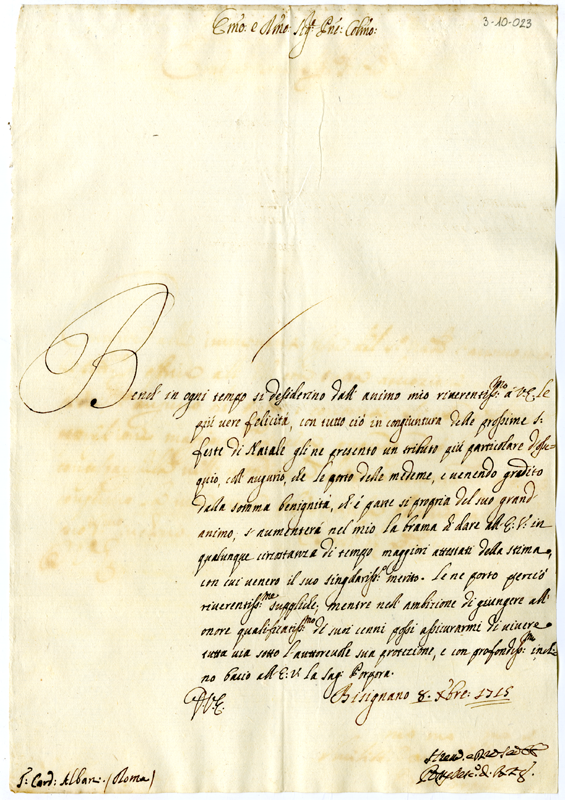 3-10-023
Em̃o: e Rm̃o: Sig.r Pñe: Colm̃o:
Bench' in ogni tempo si desiderino dall' animo mio riverentiss:mo á V.E. le
più vere felicitá, con tutto ció in congiuntura delle prossime s:
feste di Natale gli ne presento un tributo più particolare d'osse-
quio, coll' augurio, che le porto delle medeme, e venendo gradito
dalla somma benignitá, ch' é parte si propria del suo grand'
animo, s' aumenterá nel mio la brama di dare all' E.V. in
qualunque circostanza di tempo maggiori attestati della stima,
con cui venero il suo singolariss:o merito. Le ne porto perció
riverentiss:me suppliche, mentre nell' ambizione di giungere all'
onore qualificatiss:mo de suoi cenni possi assicurarmi di vivere
tutta via sotto l'autorevole sua protezione, e con profondiss:mo inchi-
no bacio all' E.V. la sag: Porpora.
D V.E.
Bisignano 8. Xbre: 1715
S: Card: Albani (Roma)